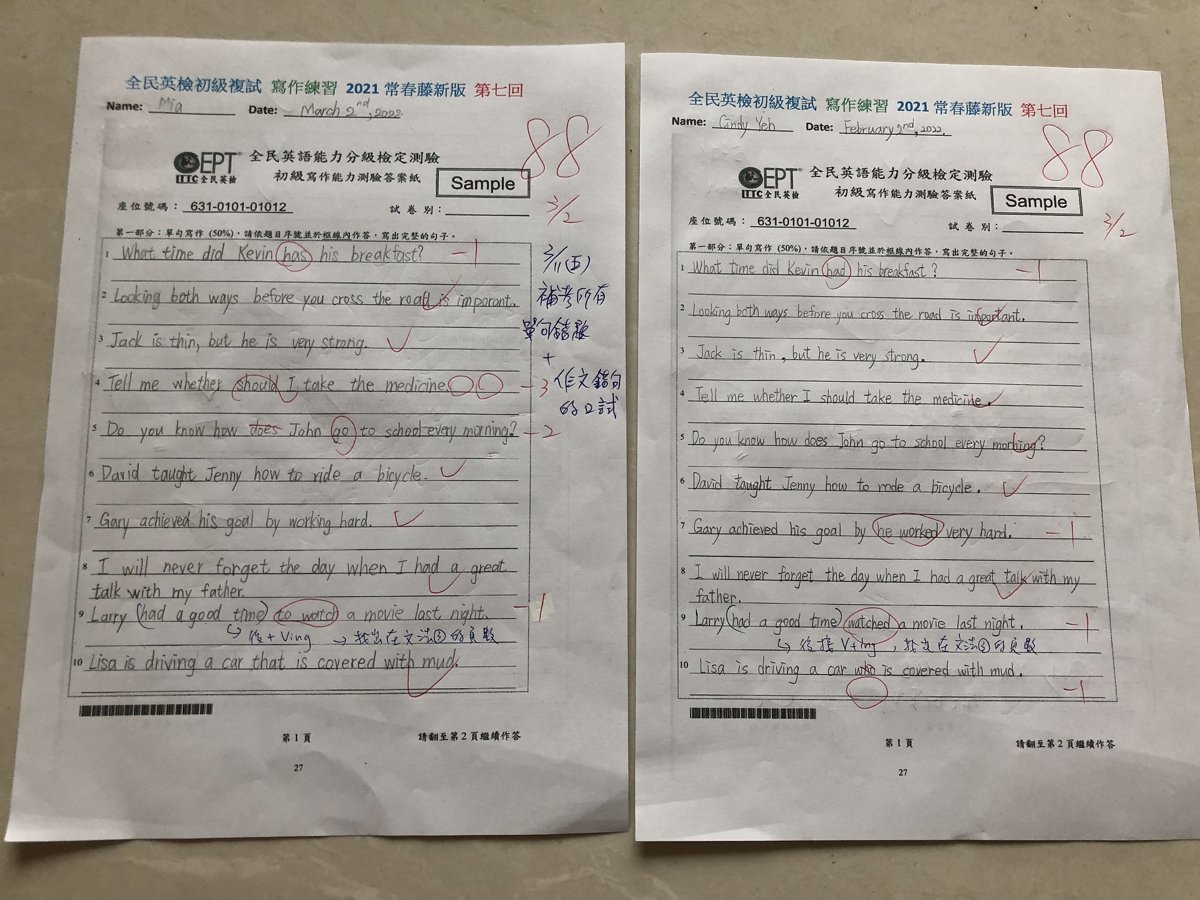 全民英檢初級複試 寫作練習 2021 常春藤新版 第七回
Name: Mia Date: March 2nd, 2022
88
GEPT 全民英語能力分級檢定測驗
LTTC 全民英檢 初級寫作能力測驗答案紙
Sample
座位號碼: 631-0101-01012 試卷別:
3/2
第一部分:單句寫作 (50%),請依題目序號並於框線內作答,寫出完整的句子。
1 What time did Kevin has his breakfast? -1
2 Looking both ways before you cross the road is imporant.
3 Jack is thin, but he is very strong.
4 Tell me whether should I take the medicine. -3
5 Do you know how does John go to school every morning? -2
6 David taught Jenny how to ride a bicycle.
7 Gary achieved his goal by working hard.
8 I will never forget the day when I had a great
talk with my father.
9 Larry (had a good time) to watch a movie last night. -1
後+Ving
10 Lisa is driving a car that is covered with mud.
3/11(五)
補考所有
單句錯題
+
作文錯句
的口試
第 1 頁 請翻至第 2 頁繼續作答
27
全民英檢初級複試 寫作練習 2021 常春藤新版 第七回
Name: Cindy Yeh Date: February 2nd, 2022.
88
GEPT 全民英語能力分級檢定測驗
LTTC 全民英檢 初級寫作能力測驗答案紙
Sample
座位號碼: 631-0101-01012 試卷別:
3/2
第一部分:單句寫作 (50%),請依題目序號並於框線內作答,寫出完整的句子。
1 What time did Kevin had his breakfast? -1
2 Looking both ways before you cross the road is important.
3 Jack is thin, but he is very strong.
4 Tell me whether I should take the medicine.
5 Do you know how does John go to school every morning?
6 David taught Jenny how to ride a bicycle.
7 Gary achieved his goal by he worked very hard. -1
8 I will never forget the day when I had a great talk with my
father.
9 Larry (had a good time) watched a movie last night. -1
後接 V+ing
10 Lisa is driving a car who is covered with mud.
-1
第 1 頁 請翻至第 2 頁繼續作答
27